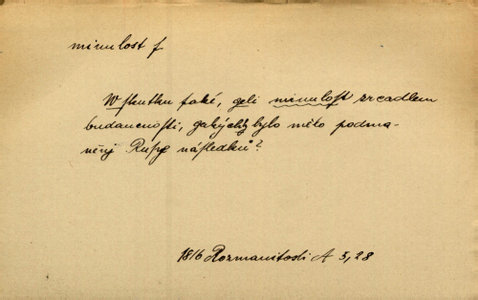 minulost f
W skutku také, geli minulost zrcadlem
budaucnosti, gakýchž bylo měto podma-
něný Rusye následků?
1816 Rozmanitosti A 5,28